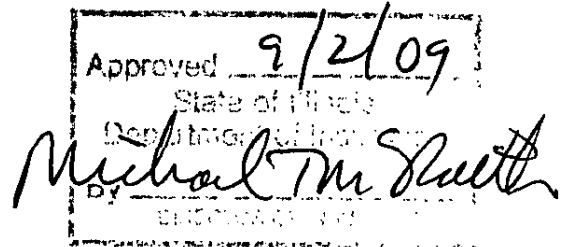 Approved 9/2/09
State of Illinois
Department of Insurance
Michael T. McRaith
By